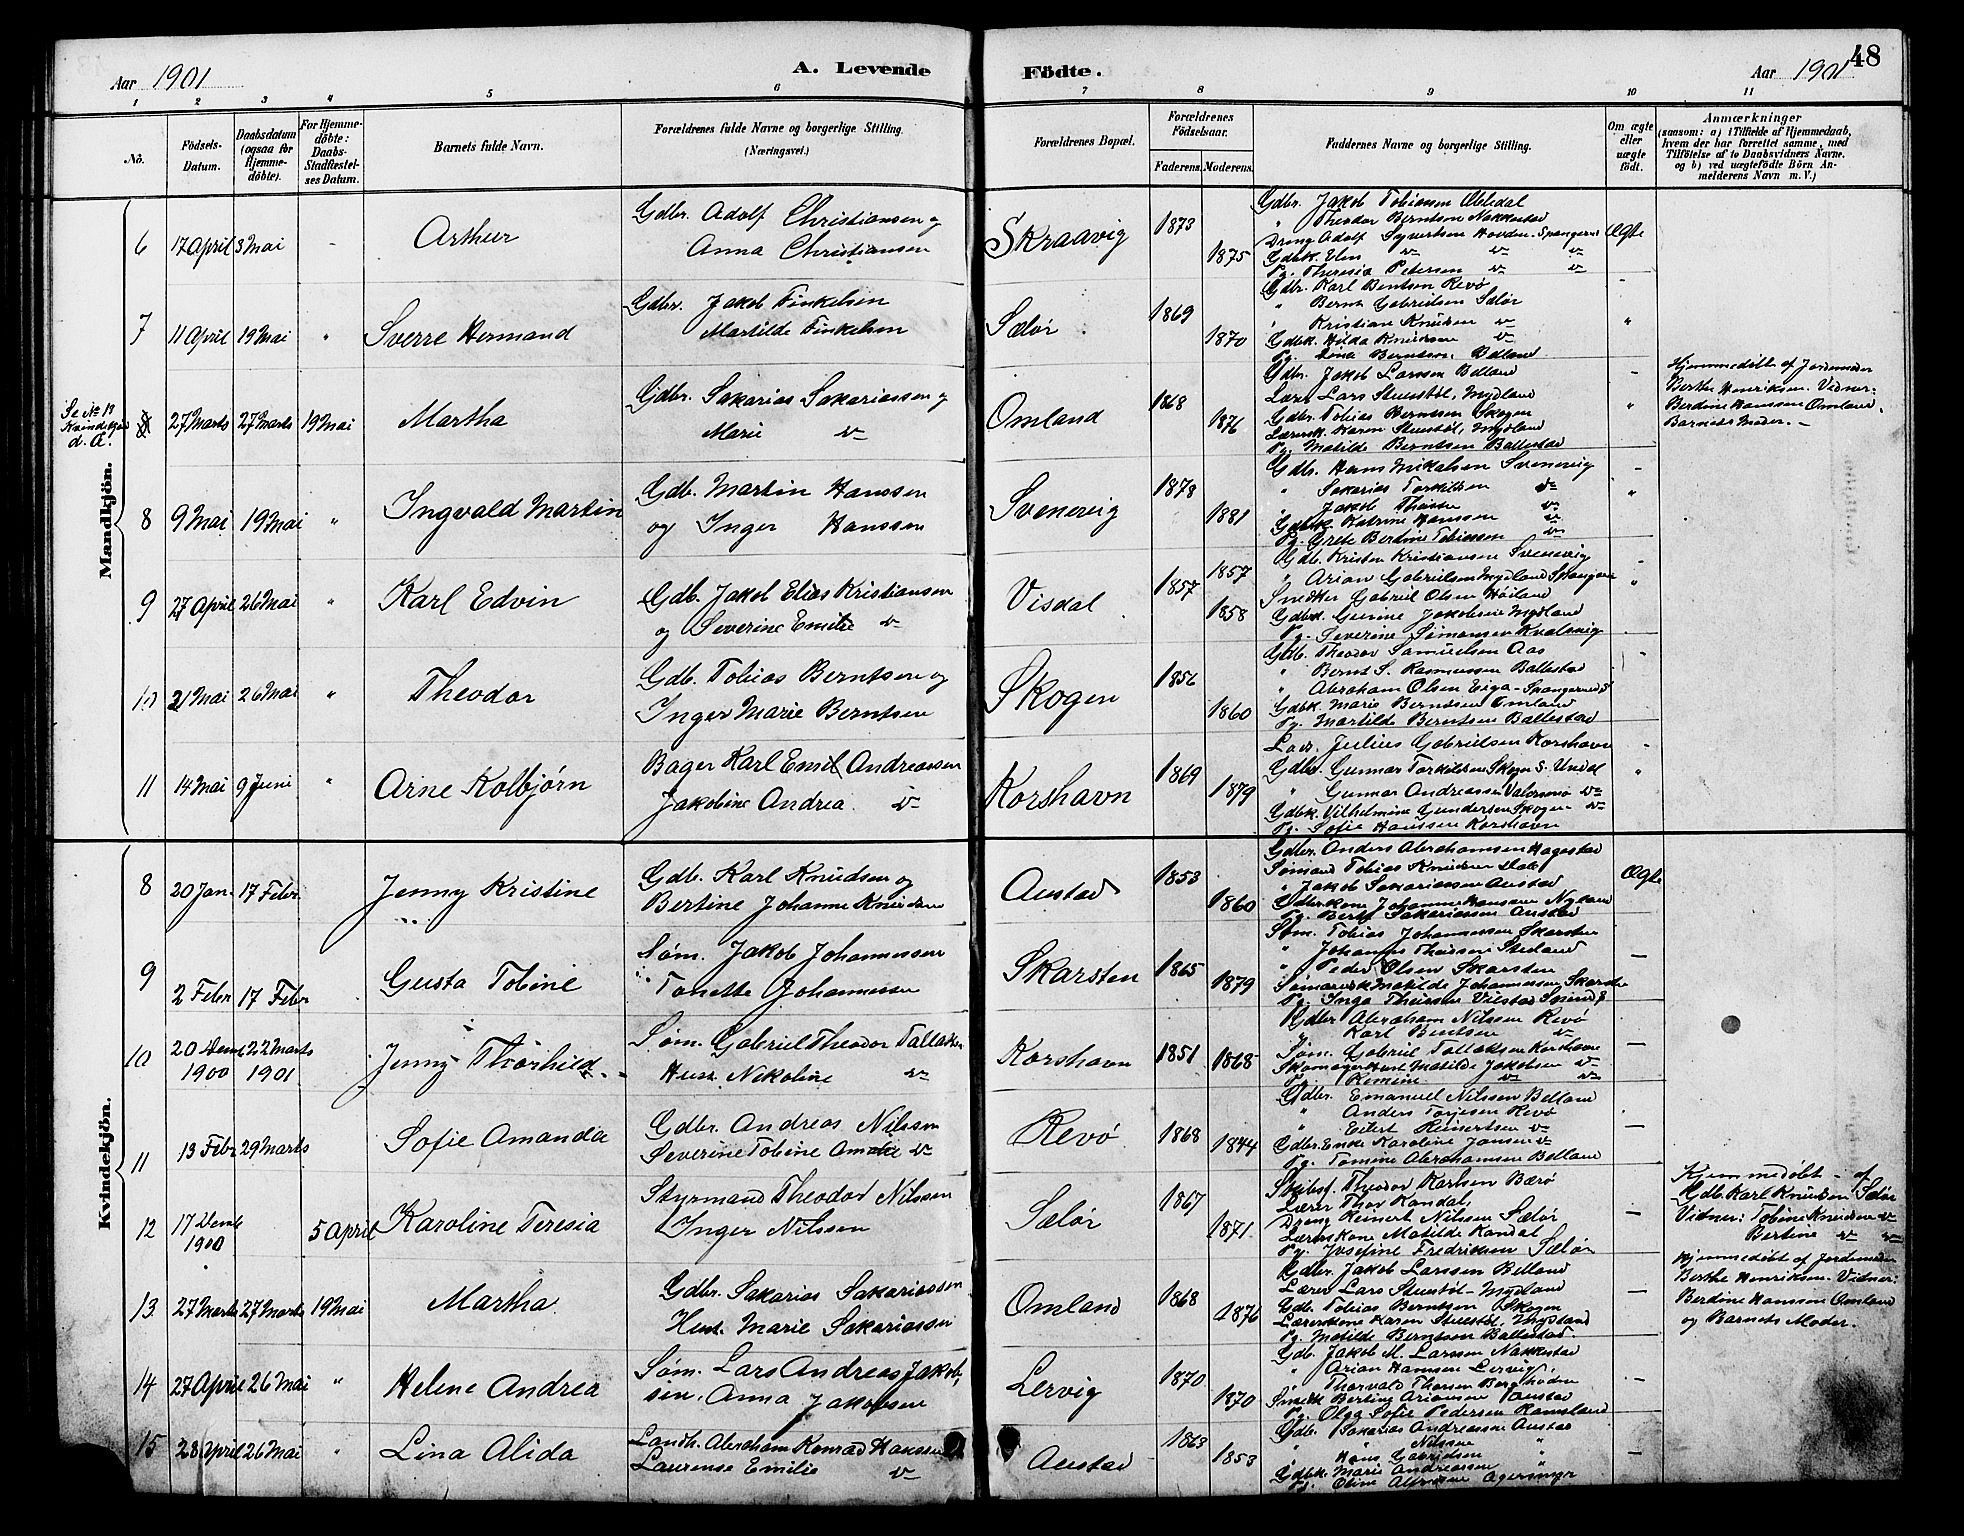 48
Aar 1901
A. Levende Födte.
Aar 1901
1 2 3 4 5 6 7 8 9 10 11
No.
Födsels-Datum.
Daabsdatum (ogsaa for Hjemme-döbte).
For Hjemme-döbte: Daabs-Stadfæstel-ses Datum.
Barnets fulde Navn.
Forældrenes fulde Navne og borgerlige Stilling. (Næringsvei.)
Forældrenes Bopæl.
Forældrenes Födselsaar.
Faderens. Moderens.
Faddernes Navne og borgerlige Stilling.
Om ægte eller uægte födt.
Anmærkninger
(saasom: a) i Tilfælde af Hjemmedaab, hvem der har forrettet samme, med Tilföielse af to Daabsvidners Navne. og b) ved uægtefödte Börn An-melderens Navn m. V.)
Mandkjön.
6 17 April 3 Mai Arthur
Gdbr. Adolf Christiansen og
Anna Christiansen
Skraavig 1873 1875
Gdbr. Jakob Tobiassen
" Theodor Berntsen Nakkestad
Dreng Adolf Syvertsen Hovden
Gdbk. Elen
Pg. Theresia Petersen
Ægte
7 11 April 19 Mai " Sverre Hermand
Gdbr. Jakob Finkelsen
Martilde Finkelsen
Sælør 1869 1870
Gdbr. Karl Bentsen Revø
" Bernt Gabrielsen Sælør
" Kristian Knudsen
Gdbk. Hilda Knudsen
Pg. Berntsen Belland
Se No 13
Kvindekjøn
d. A.
27 Marts 27 Marts 19 Mai Martha
Gdbr. Sakarias Sakariassen og
Marie
Omland 1868 1876
Gdbr. Jakob Larsen Belland
Lærer Lars Stuestøl, Mydland
Gdbr. Tobias Berntsen Skogen
Lærersk. Karen Stuestøl, Mydland
Pg. Matilde Berntsen Ballestad
Hjemmedöbt af Jordemoder
Berthe Henriksen. Vidner:
Berdine Hanssen Omland.
Barnets Moder.
8 9 Mai 19 Mai " Ingvald Martin
Gdb. Martin Hanssen
og Inger Hanssen
Svenevig 1878 1881
Gdb. Hans Mikalsen Svenevig
" Sakarias Torkildsen
" Jakob
Gdbk. Katrine Hanssen
Pg. Grete Berdine Tobiassen
9 27 April 26 Mai " Karl Edvin
Gdb. Jakob Elias Kristiansen
og Severine Emilie
Visdal 1857 1857 1858
Gdb. Kristen Kristiansen Svenevig
" Arian Gabrielsen Mydland Spangereid
Snedker Gabriel Olsen Høiland
Gdbk. Gurine Jakobsen Mydland
Pg. Severine Simonsen Kvalsvig
10 21 Mai 26 Mai " Theodor
Gdb. Tobias Berntsen og
Inger Marie Berntsen
Skogen 1856 1860
Gdb. Theodor Samuelsen Aas
" Bernt S. Rasmussen Ballestad
" Abraham Olsen Eiga
Gdbk. Marie Berntsen Omland
Pg. Martilde Berntsen Ballestad
11 14 Mai 9 Juni " Arne Kolbjørn
Bager Karl Emil Andreassen
Jakobine Andrea
Korshavn 1869 1879
Julius Gabrielsen Korshavn
Gdbr. Gunnar Torkildsen Skogen S. Undal
" Gunnar Andreassen
Gdbk. Vilhelmine Gundersen Skogen
Pg. Sofie Hanssen Korshavn
Kvindekjön.
8 20 Jan. 17 Febr. Jenny Kristine
Gdb. Karl Knudsen og
Bertine Johanne Knudsen
Austad 1853 1860
Gdbr. Anders Abrahamsen Hagestad
Sømand Tobias Knudsen
" Jakob Sakariassen Austad
Gdbrkone Johanne Hansen
Pg. Berte Sakariassen Austad
Ægte
9 2 Febr 17 Febr Gusta Tobine
Søm. Jakob Johannessen
Tonette Johannessen
Skarsten 1865 1879
Søm. Tobias Johannessen Skarsten
" Johannes
" Peder Olsen Skarsten
Matilde Johannessen Skarsten
Pg. Inga
10 20 Decmb 1900 22 Marts 1901 Jenny Thorhild
Søm. Gabriel Theodor Tallaksen
Hust. Nikoline
Korshavn 1851 1868
Gdbr Abraham Nilssen Revø
" Karl Bentsen
Søm. Gabriel Tallaksen Korshavn
Skomager Matilde Jakobsen
Pg.
11 13 Febr 29 Marts Sofie Amanda
Gdbr. Andreas Nilssen
Severine Tobine
Revø 1868 1844
Gdbr. Emanuel Nilssen Belland
" Anders Torjesen Revø
" Eilert Reinertsen
Gdbr. Enke Karoline Jansen
Pg. Tomine Abrahamsen Belland
12 17 Decmb 1900 5 April Karoline Teresia
Styrmand Theodor Nilssen
Inger Nilssen
Sælør 1867 1871
Skibsf. Theodor Karlsen Bærø
Lærer Thor Kandal
Dreng Reinert Nilssen Sælør
Lærerkone Matilde Kandal
Pg. Josefine Fredriksen Sælør
Hjemmedöbt af
Gdb. Karl Knudsen Sælør
Vidner: Tobine Knudsen
Bertine
13 27 Marts 27 Marts 19 Mai Martha
Gdbr. Sakarias Sakariassen
Hust. Marie Sakariassen
Omland 1868 1876
Gdbr. Jakob Larssen Belland
Lærer Lars Stuestøl. Mydland
Gdb. Tobias Berntsen Skogen
Lærerkone Karen Stuestøl, Mydland
Pg. Matilde Berntsen Ballestad
Hjemmedöbt af Jordemoder
Berthe Henriksen. Vidner:
Berdine Hanssen Omland
og Barnets Moder.
14 27 April 26 Mai " Helene Andrea
Søm. Lars Andreas Jakob-
sen, Anna Jakobsen
Lervig 1870 1870
Gdb. Jakob M. Larssen Nakkestad
" Arian Hanssen Lervig
" Thorvald Thorsen
Bertine Ariansen
Pg. Olga Sofie Pedersen Ramsland
15 28 April 26 Mai " Lina Alida
Landh. Abraham Konrad Hanssen
Laurense Emilie
Austad 1863 1853
Gdb. Sakarias Andreassen Austad
" Nilssen "
" Hans Gabrielsen "
Gdbk. Marie Andreassen "
Pg.